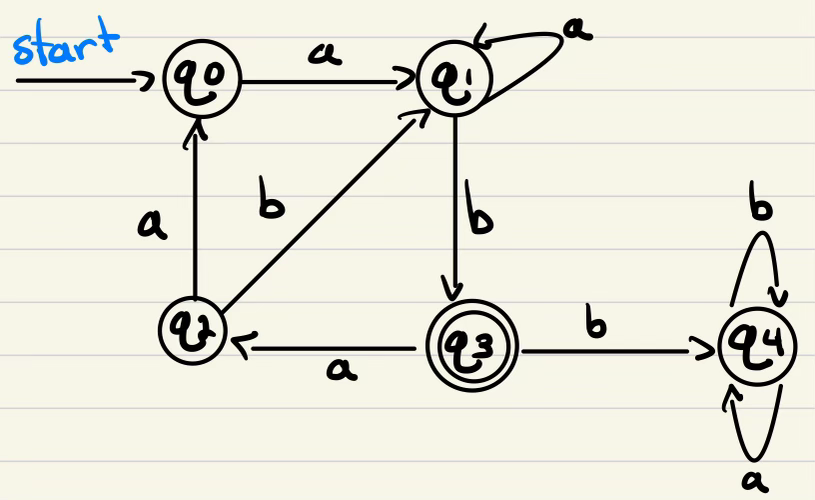 start
q0
a
q1
a
a
b
b
b
q2
a
q3
b
q4
a